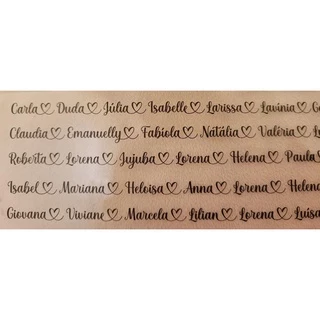 Carla Duda Júlia Isabelle Larissa Lavínia
Claudia Emanuelly Fabíola Natália Valéria
Roberta Lorena Jujuba Lorena Helena Paula
Isabel Mariana Heloisa Anna Lorena Helena
Giovana Viviane Marcela Lilian Lorena Luisa